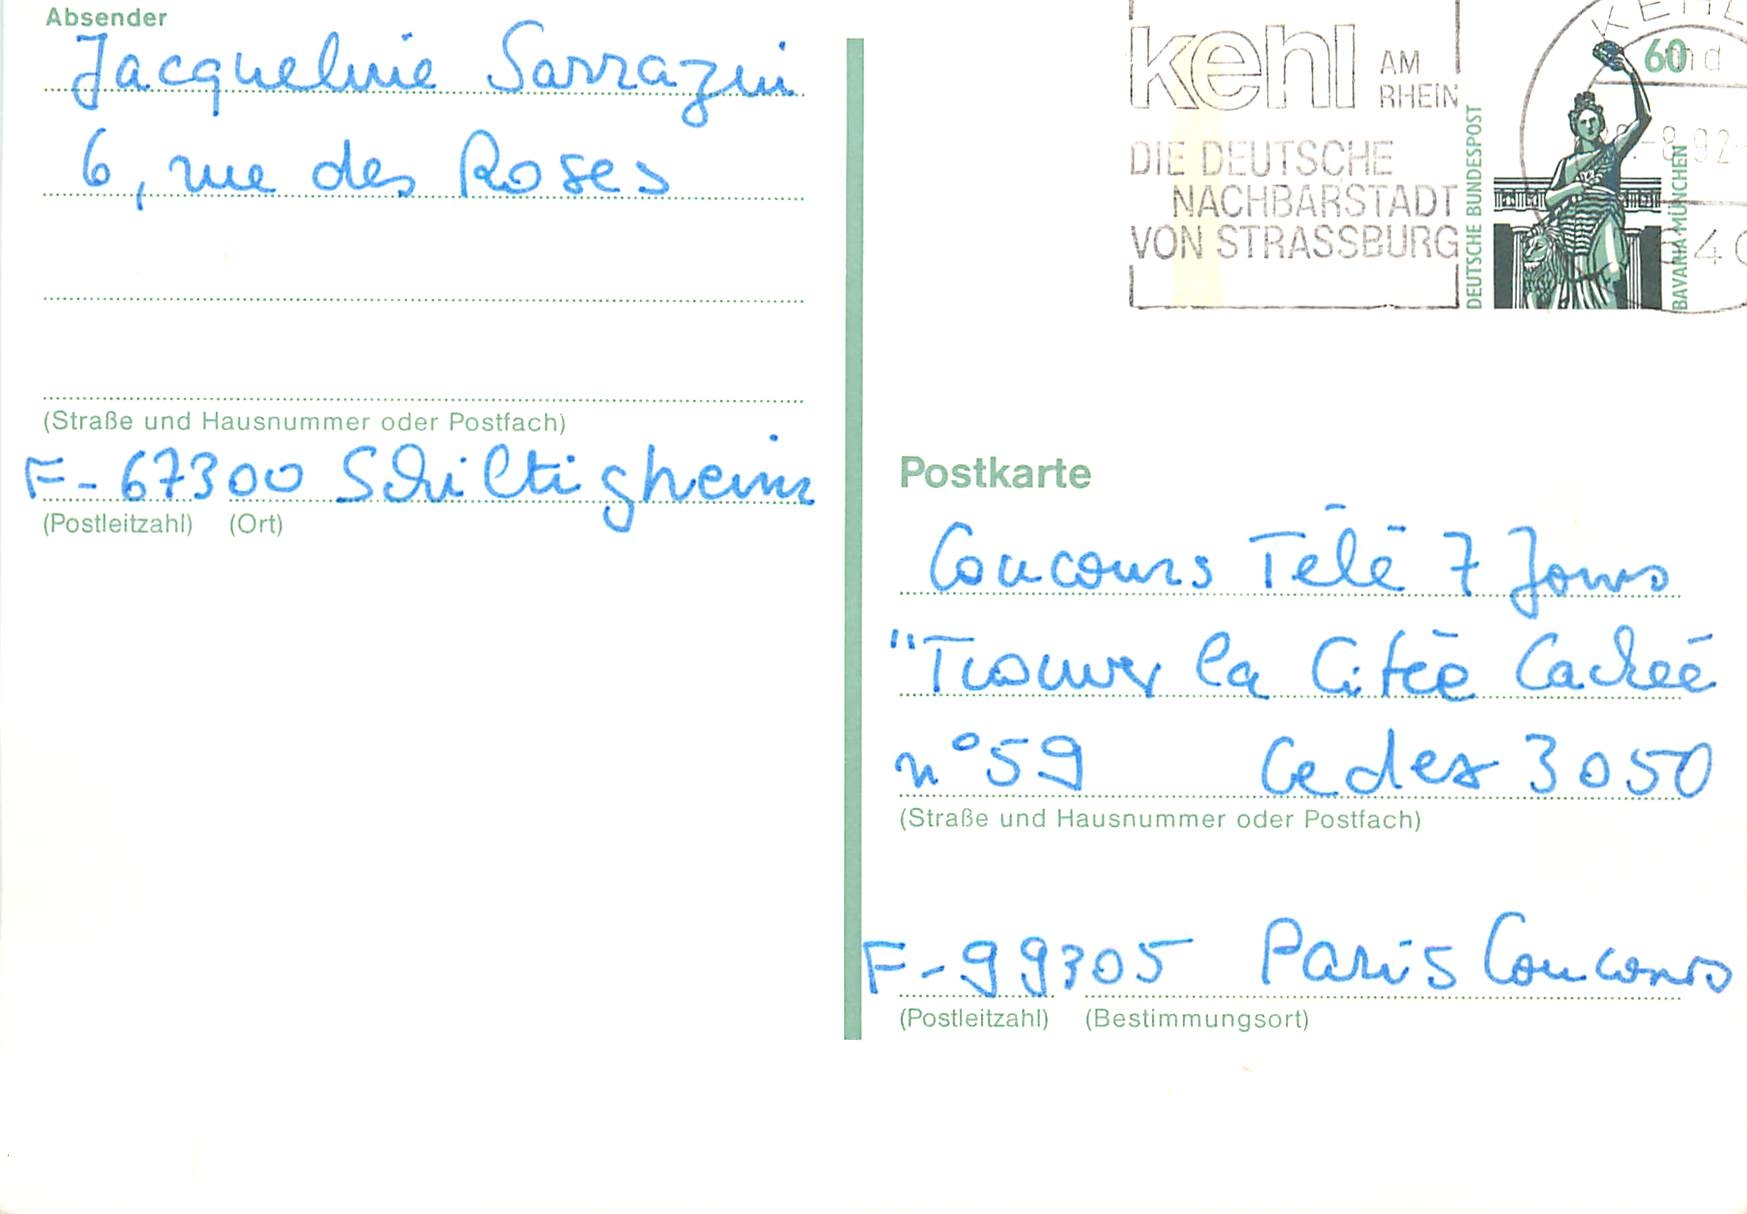 Absender
Jacqueline Sarrazin
6, rue des Roses
(Straße und Hausnummer oder Postfach)
F-67300 Schiltigheim
(Postleitzahl) (Ort)
kehl AM RHEIN
DIE DEUTSCHE
NACHBARSTADT
VON STRASSBURG
DEUTSCHE BUNDESPOST
60
BAVARIA MÜNCHEN
KEHL
Postkarte
Concours Télé 7 Jours
"Trouver la Citée Cachée
n°59 Cedex 3050
(Straße und Hausnummer oder Postfach)
F-99305 Paris Concours
(Postleitzahl) (Bestimmungsort)